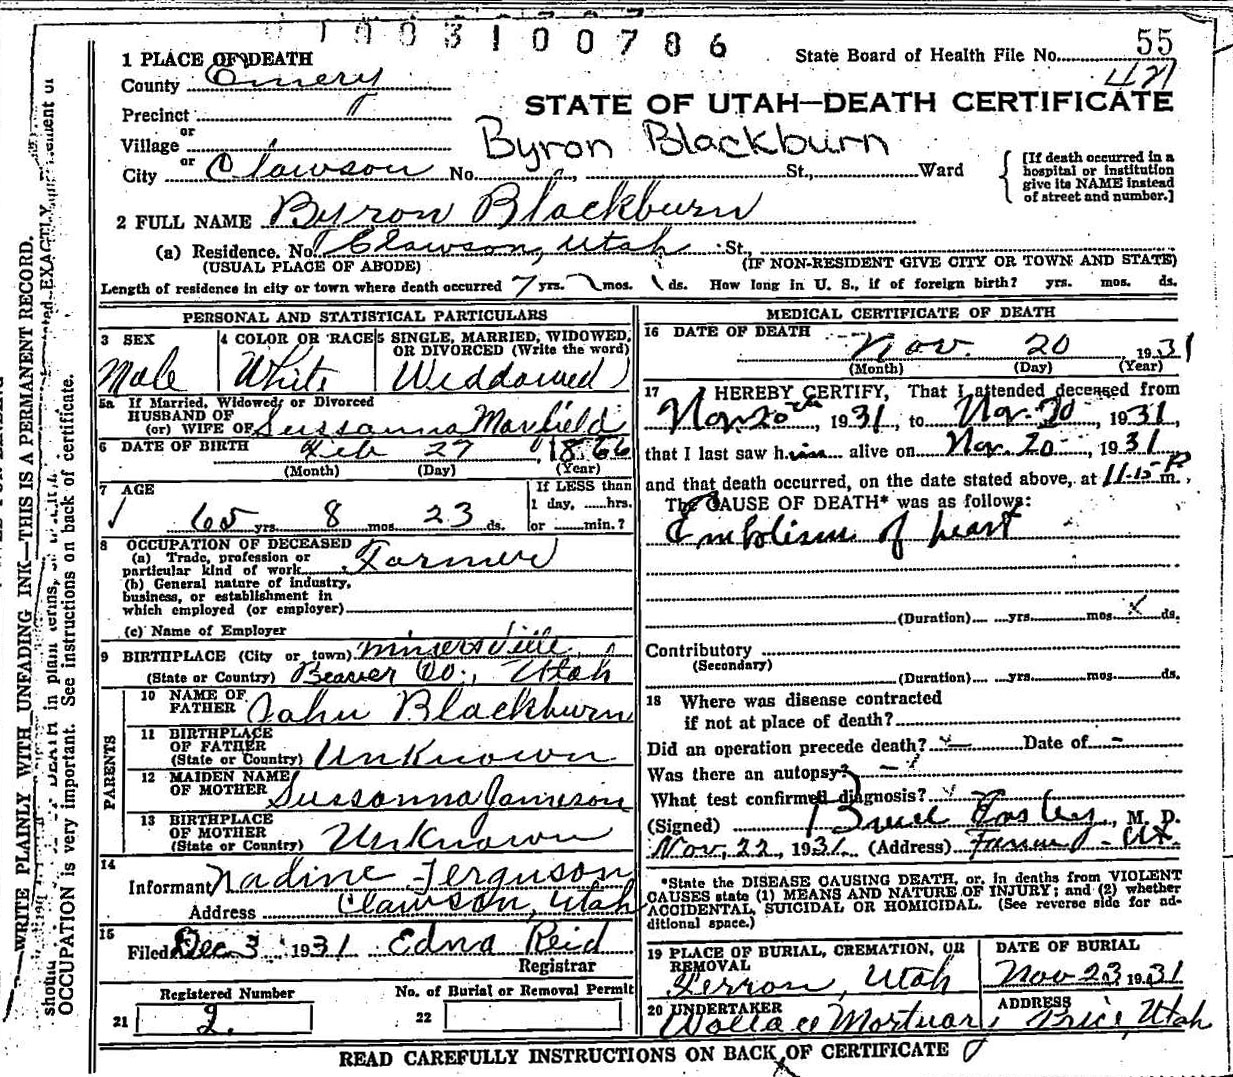 1003100786
State Board of Health File No. 55
421
1 PLACE OF DEATH
County Emery
STATE OF UTAH—DEATH CERTIFICATE
Precinct
or
Village
Byron Blackburn
or
City Clawson No. St., Ward
[If death occurred in a hospital or institution give its NAME instead of street and number.]
2 FULL NAME Byron Blackburn
(a) Residence. No. Clawson, Utah St.,
(USUAL PLACE OF ABODE) (IF NON-RESIDENT GIVE CITY OR TOWN AND STATE)
Length of residence in city or town where death occurred 7 yrs. mos. ds. How long in U. S., if of foreign birth? yrs. mos. ds.
PERSONAL AND STATISTICAL PARTICULARS
3 SEX
Male
4 COLOR OR RACE
White
5 SINGLE, MARRIED, WIDOWED,
OR DIVORCED (Write the word)
Widdowed
5a If Married, Widowed, or Divorced
HUSBAND OF
(or) WIFE OF Sussanna Maxfield
6 DATE OF BIRTH Feb 27, 1866
(Month) (Day) (Year)
7 AGE
65 yrs. 8 mos. 23 ds.
If LESS than
1 day, ......hrs.
or ......min.?
8 OCCUPATION OF DECEASED
(a) Trade, profession or
particular kind of work Farmer
(b) General nature of industry,
business, or establishment in
which employed (or employer)
(c) Name of Employer
9 BIRTHPLACE (City or town) Minersville
(State or Country) Beaver Co., Utah
PARENTS
10 NAME OF
FATHER John Blackburn
11 BIRTHPLACE
OF FATHER
(State or Country) Unknown
12 MAIDEN NAME
OF MOTHER Sussanna Jameson
13 BIRTHPLACE
OF MOTHER
(State or Country) Unknown
14
Informant Nadine Ferguson
Address Clawson, Utah
15
Filed Dec 3, 1931 Edna Reid
Registrar
Registered Number
21 2.
No. of Burial or Removal Permit
22
MEDICAL CERTIFICATE OF DEATH
16 DATE OF DEATH
Nov. 20, 1931
(Month) (Day) (Year)
17 I HEREBY CERTIFY, That I attended deceased from
Nov 20th, 1931, to Nov. 20, 1931,
that I last saw him alive on Nov. 20, 1931
and that death occurred, on the date stated above, at 11.15 P m.
The CAUSE OF DEATH* was as follows:
Embolism of heart
(Duration) yrs. mos. X ds.
Contributory
(Secondary)
(Duration) yrs. mos. ds.
18 Where was disease contracted
if not at place of death?
Did an operation precede death? Date of -
Was there an autopsy?
What test confirmed diagnosis?
(Signed) Bruce Easley, M. D.
Nov, 22, 1931. (Address) Ut.
*State the DISEASE CAUSING DEATH, or, in deaths from VIOLENT
CAUSES state (1) MEANS AND NATURE OF INJURY; and (2) whether
ACCIDENTAL, SUICIDAL OR HOMICIDAL. (See reverse side for ad-
ditional space.)
19 PLACE OF BURIAL, CREMATION, OR
REMOVAL
Ferron, Utah
DATE OF BURIAL
Nov 23 1931
20 UNDERTAKER
Wallace Mortuary
ADDRESS
Price, Utah
READ CAREFULLY INSTRUCTIONS ON BACK OF CERTIFICATE
WRITE PLAINLY WITH UNFADING INK—THIS IS A PERMANENT RECORD.
OCCUPATION is very important. See instructions on back of certificate.